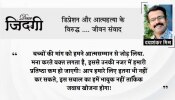 डियर
ज़िंदगी
डिप्रेशन और आत्महत्या के
विरुद्ध .... जीवन संवाद
दयाशंकर मिश्र
बच्चों की मांग को हमने आत्मसम्मान से जोड़ लिया.
मना करते वक्त लगता है, इससे उनकी नजर में हमारी
प्रतिष्ठा कम हो जाएगी! आप हमारे लिए इतना भी नहीं
कर सकते, इस सवाल का हमें भावुक नहीं तार्किक
जवाब खोजना होगा!